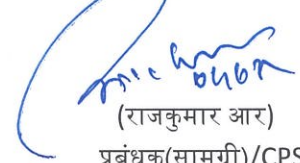 (राजकुमार आर)
प्रबंधक(सामग्री)/CPS